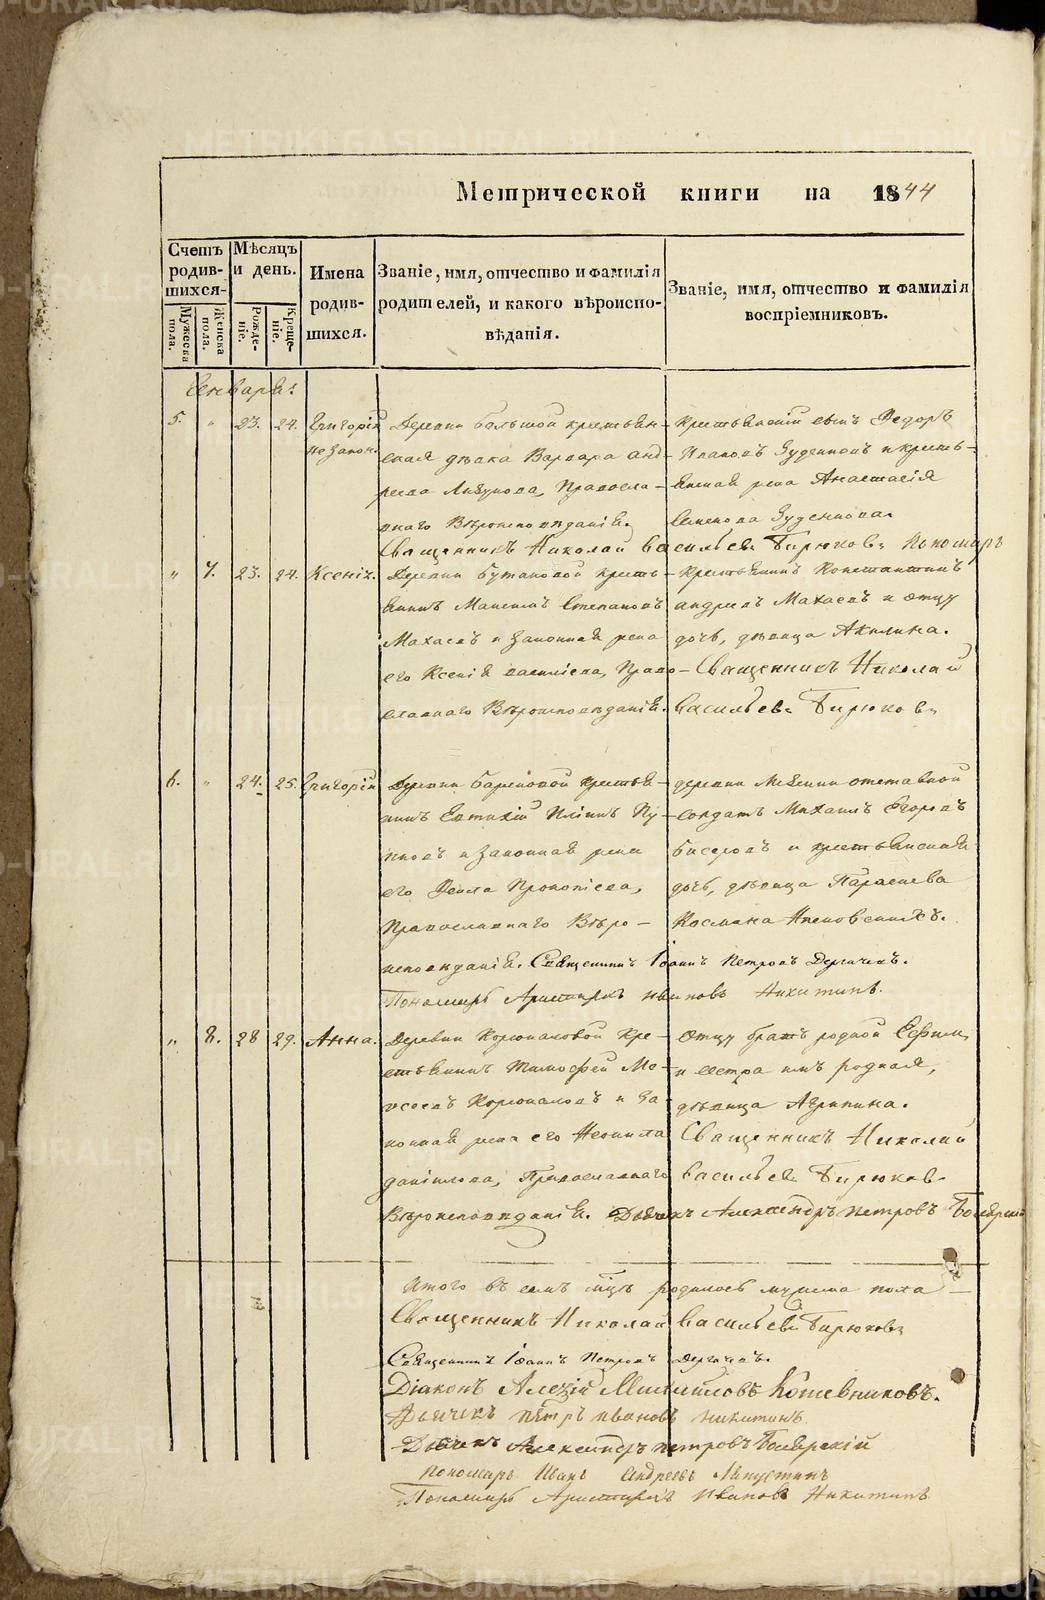 Метрической книги на 1844
Счетъ родив- шихся.
Мужеска пола.
Женска пола.
Мѣсяцъ и день.
Рожде- ніе.
Креще- ніе.
Имена родив- шихся.
Званіе, имя, отчество и фамилія родителей, и какого вѣроиспо- вѣданія.
Званіе, имя, отчество и фамилія воспріемниковъ.
Января:
5. „ 23. 24. Григорій Деревни Большой крестьян-
незакон. ская дѣвка Варвара Анд-
реева Православ-
наго Вѣроисповѣданія.
Крестьянскій сынъ Федоръ
Ивановъ и кресть-
янская жена Анастасія
Семенова
Священникъ Николай Васильевъ Бирюковъ Пономарь
„ 7. 23. 24. Ксенія. Деревни Бутаковой кресть-
янинъ Максимъ Степановъ
Махаевъ и законная жена
его Ксенія Право-
славнаго Вѣроисповѣданія.
Крестьянинъ Константинъ
Андреевъ Махаевъ и отцу
дочь, дѣвица Акилина.
Священникъ Николай
Васильевъ Бирюковъ
6. „ 24. 25. Григорій Деревни крестья-
нинъ Евтихій
и законная жена
его Фекла Прокопіева,
Православнаго Вѣро-
исповѣданія. Священникъ Іоаннъ Петровъ Дергачевъ.
деревни отставной
солдатъ Михаилъ Егоровъ
и крестьянская
дочь, дѣвица Параскева
Космина
Пономарь Аристархъ Ивановъ Никитинъ.
„ 8. 28 29. Анна. Деревни Корюкаловой кре-
стьянинъ Тимофей Мо-
исеевъ Корюкаловъ и за-
конная жена его Неонила
Данілова, Православнаго
Вѣроисповѣданія. Дьячекъ Александръ Петровъ Боярскій
Отцу братъ родной Ефимъ
и сестра имъ родная,
дѣвица Агрипина.
Священникъ Николай
Васильевъ Бирюковъ
Итого въ семъ мцѣ родилось мужеска пола —
Священникъ Николай Васильевъ Бирюковъ
Священникъ Іоаннъ Петровъ Дергачевъ.
Діаконъ Алексій Михайловъ Кожевниковъ.
Дьячекъ Петръ Ивановъ Никитинъ.
Дьячекъ Александръ Петровъ Боярскій
Пономарь Иванъ Андреевъ
Пономарь Аристархъ Ивановъ Никитинъ
METRIKI.GASO-URAL.RU